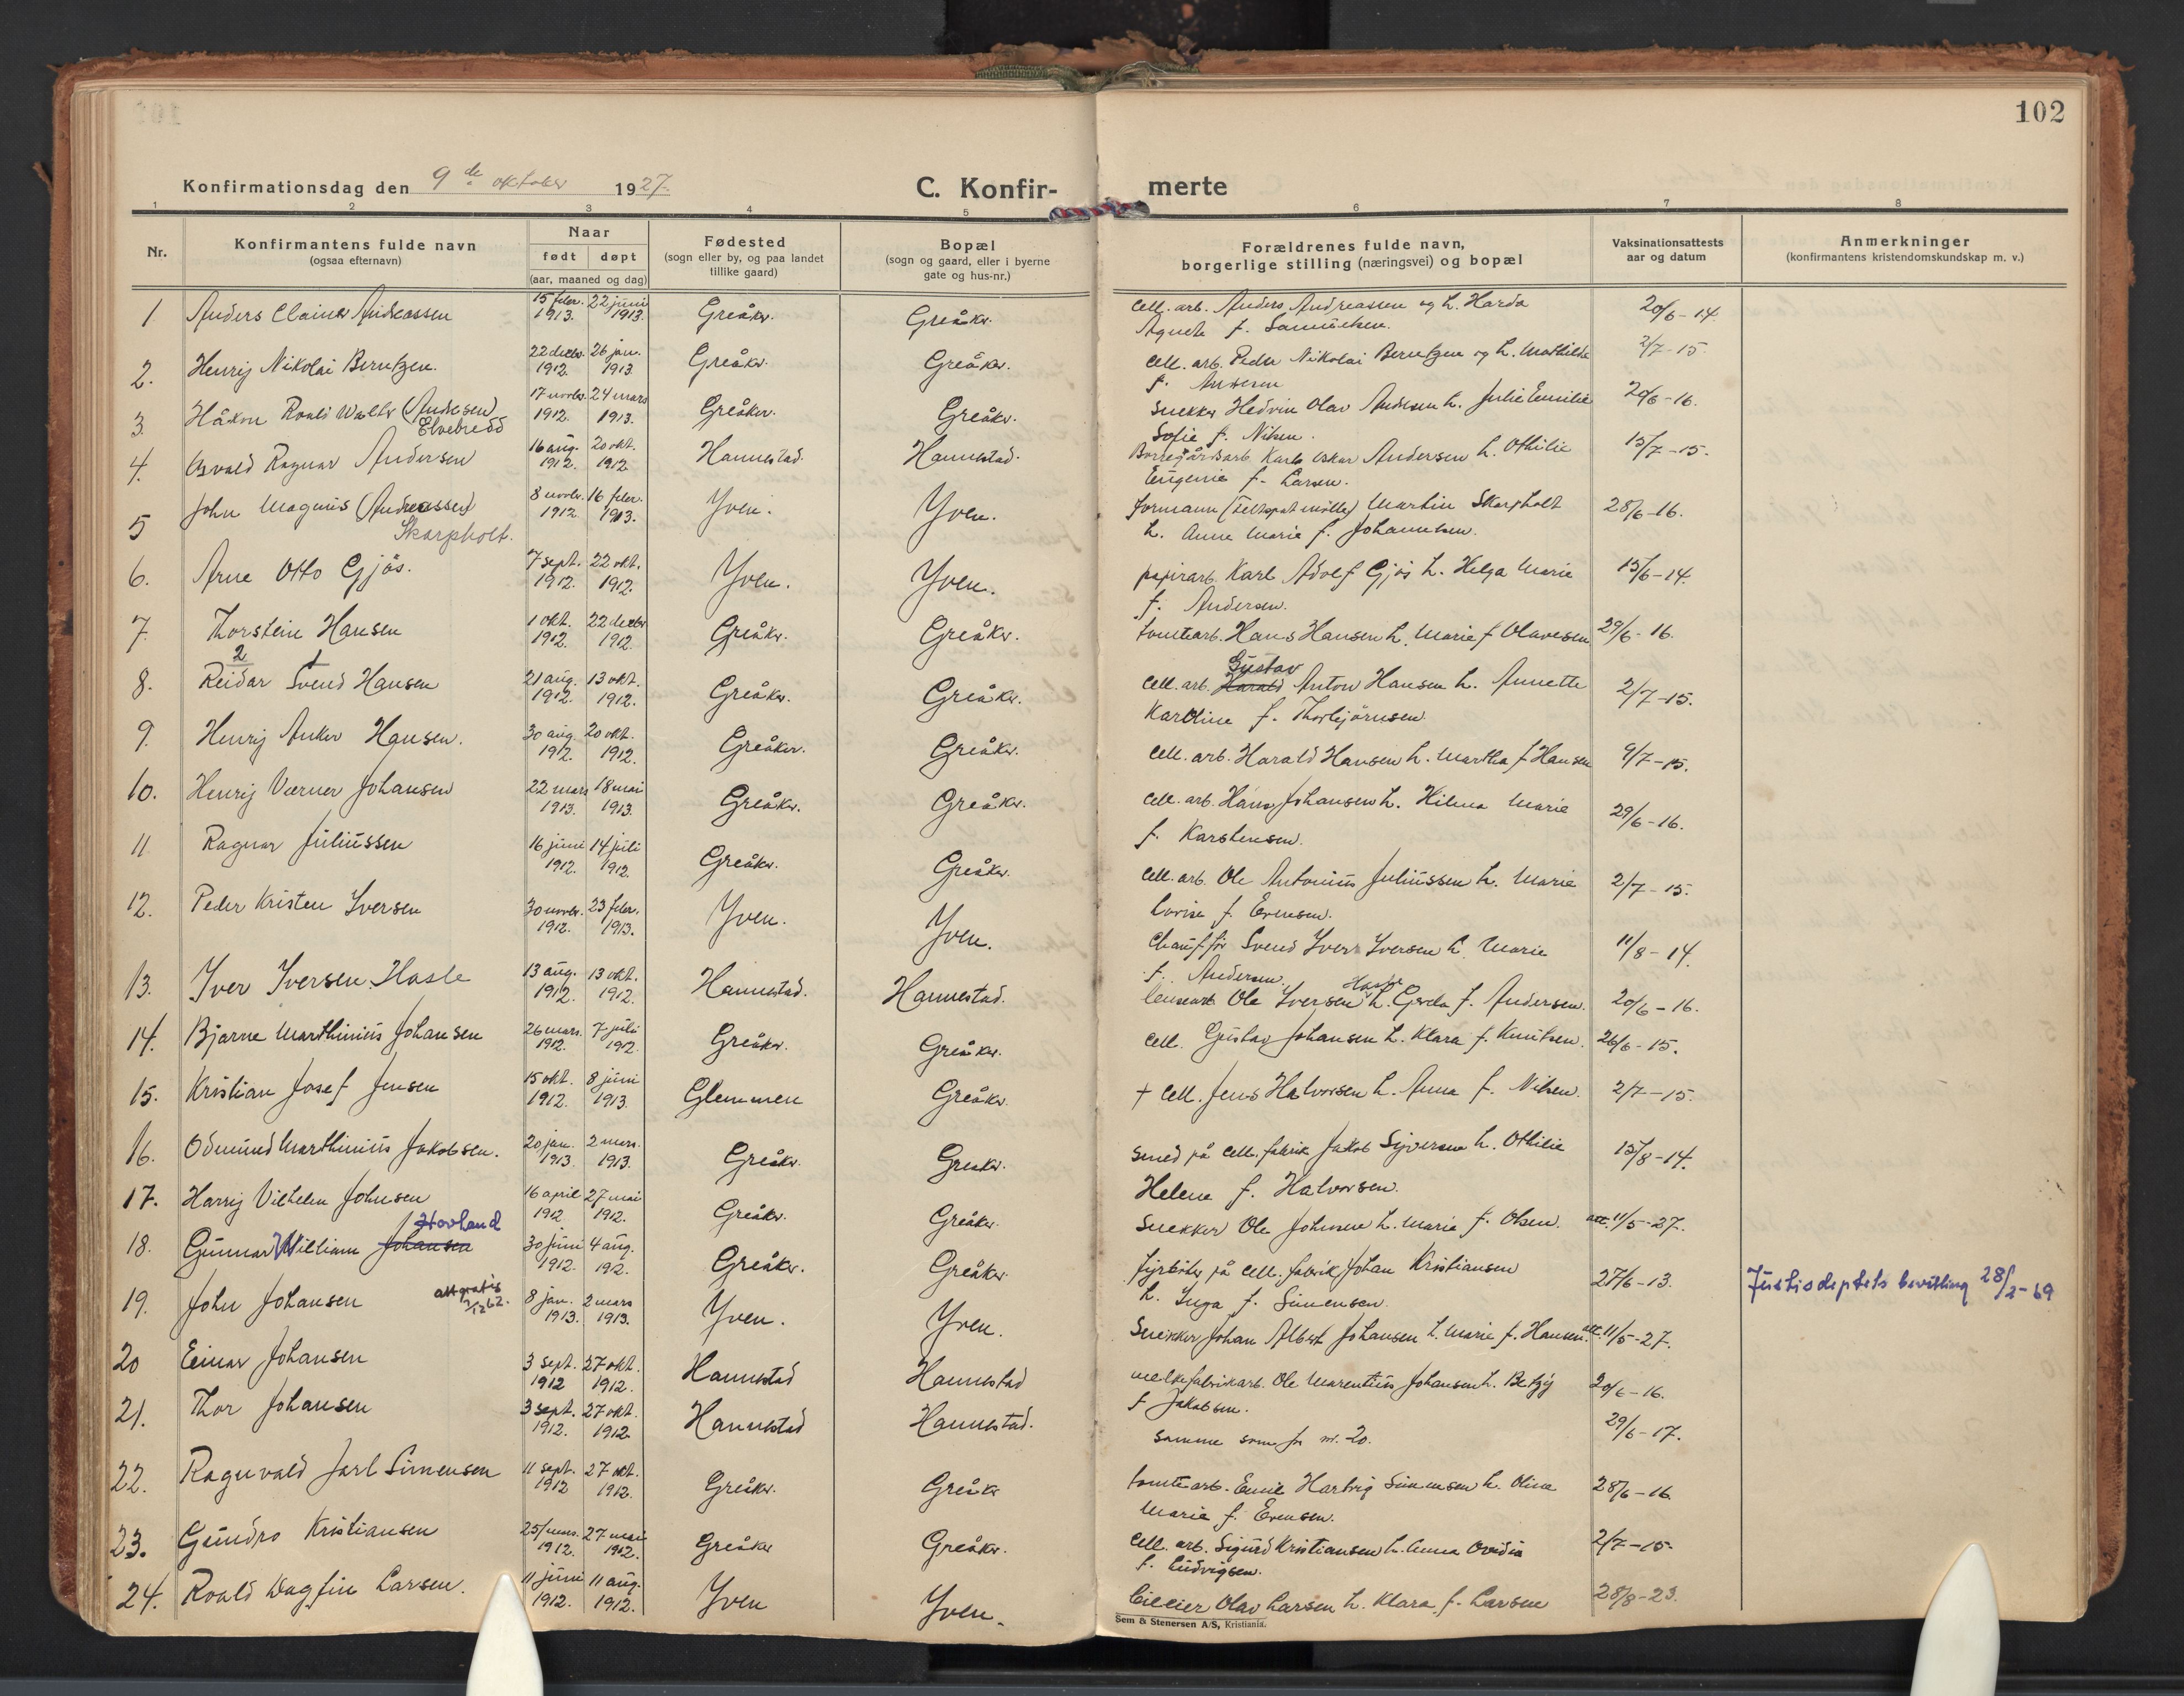 102
Konfirmationsdag den 9de oktober 1927.
C. Konfirmerte
1 2 3 4 5 6 7 8
Nr. Konfirmantens fulde navn (ogsaa efternavn) Naar født døpt (aar, maaned og dag) Fødested (sogn eller by, og paa landet tillike gaard) Bopæl (sogn og gaard, eller i byerne gate og hus-nr.) Forældrenes fulde navn, borgerlige stilling (næringsvei) og bopæl Vaksinationsattests aar og datum Anmerkninger (konfirmantens kristendomskundskap m. v.)
1 Anders Andreassen 15 febr. 1913. 22 juni 1913. Greåker. Greåker. Cell. arb. Anders Andreassen og h. Harda Agnete f. Samuelsen. 20/6-14.
2. Henrij Nikolai Berntzen. 22 decbr. 1912. 26 jan. 1913 Greåker. Greåker. Cell. arb. Peder Nikolai Berntzen og h. Mathilde f. Andersen 2/7-15.
3. Håkon Roald Walter (Andersen) Elvebredd 17 novbr. 1912. 24 mars 1913. Greåker. Greåker. Snekker Hedvin Olav Andersen h. Julie Emilie Sofie f. Nilsen. 20/6-16.
4. Osvald Ragnar Andersen 16 aug. 1912. 20 okt. 1912. Hannestad. Hannestad. Borregårdsarb. Karl Oskar Andersen h. Othilie Eugenie f. Larsen. 15/7-15.
5 John Magnus (Andreassen) Skarpholt. 8 novbr. 1912 16 febr. 1913. Yven. Yven. Formann (Feltspatmølle) Martin Skarpholt h. Anna Marie f. Johannesen. 28/6-16.
6. Arne Otto Gjøs. 7 sept. 1912. 22 okt. 1912. Yven. Yven. papirarb. Karl Adolf Gjøs h. Helga Marie f. Andersen. 15/6-14.
7. Thorstein Hansen 1 okt. 1912. 22 decbr 1912. Greåker. Greåker. tomtearb. Hans Hansen h. Marie f Olavesen 29/6-16.
8. 2 1 Reidar Svend Hansen 21 aug. 1912. 13 okt. 1912. Greåker. Greåker. Cell. arb. Harald Gustav Anton Hansen h. Annette Karoline f. Thorbjørnsen. 2/7-15.
9. Henrij Anker Hansen. 30 aug. 1912. 20 okt. 1912. Greåker. Greåker. Cell. arb. Harald Hansen h. Martha f Hansen 9/7-15.
10. Henrij Værner Johansen 22 mars 1913 18 mai 1913. Greåker. Greåker. Cell. arb. Hans Johansen h. Hilma Marie f. Karstensen. 29/6-16.
11 Ragnar Juliussen 16 juni 1912. 14 juli 1912. Greåker. Greåker. Cell. arb. Ole Antonius Juliussen h. Marie Lovise f. Evensen. 2/7-15.
12. Peder Kristen Iversen 30 novbr. 1912. 23 febr. 1913. Yven. Yven. Chauffør Svend Iver Iversen h. Marie f. Andersen. 11/8-14.
13. Iver Iversen Hasle 13 aug. 1912. 13 okt. 1912. Hannestad. Hannestad. Ole Iversen Hasle h. Gerda f. Andersen. 20/6-16.
14. Bjarne Marthinius Johansen 26 mars. 1912. 7 juli 1912 Greåker. Greåker. Cell. Gustav Johansen h. Klara f. Knutsen. 26/6-15.
15. Kristian Josef Jensen 15 okt. 1912. 8 juni 1913. Glemmen Greåker. + Cell. Jens Halvorsen h. Anna f. Nilsen. 2/7-15.
16. Odmund Marthinius Jakobsen. 20 jan. 1913. 2 mars. 1913. Greåker. Greåker. Smed på cell. fabrik Jakob Syversen h. Othilie Helene f. Halvorsen. 15/8-14.
17. Harrij Vilhelm Johnsen 16 april 1912 27 mai 1912. Greåker. Greåker. Snekker Ole Johnsen h. Marie f. Olsen. att. 11/5-27.
18. Gunnar William Johansen Hovland 30 juni 1912. 4 aug. 1912. Greåker. Greåker. fyrbøter på cell. fabrik Johan Kristiansen h. Inga f. Simensen. 27/6-13. Justisdeptets bevilling 28/2-69
19. John Johansen att gratis 1/12 62. 8 jan. 1913. 2 mars 1913. Yven. Yven. Snekker Johan Albert Johansen h. Marie f. Hansen. att. 11/5-27.
20 Einar Johansen 3 sept. 1912 27 okt. 1912. Hannestad Hannestad melkefabrikarb. Ole Marentius Johansen h. Betzy f Jakobsen. 20/6-16.
21. Thor Johansen 3 sept. 1912. 27 okt. 1912. Hannestad Hannestad. samme som for nr. 20. 29/6-17.
22. Ragnvald Jarl Simensen 11 sept. 1912 27 okt. 1912. Greåker. Greåker tomtearb. Emil Hartvig Simensen h. Oline Marie f. Evensen. 28/6-16
23. Gundro Kristiansen 25 mars. 1912. 27 mai 1912. Greåker Greåker. Cell. arb. Sigurd Kristiansen h. Anna Ovidia f. Ludvigsen. 2/7-15
24. Roald Dagfin Larsen. 11 juni 1912. 11 aug. 1912. Yven Yven. Olav Larsen h. Klara f. Larsen 28/8-23.
Sem & Stenersen A/S, Kristiania.